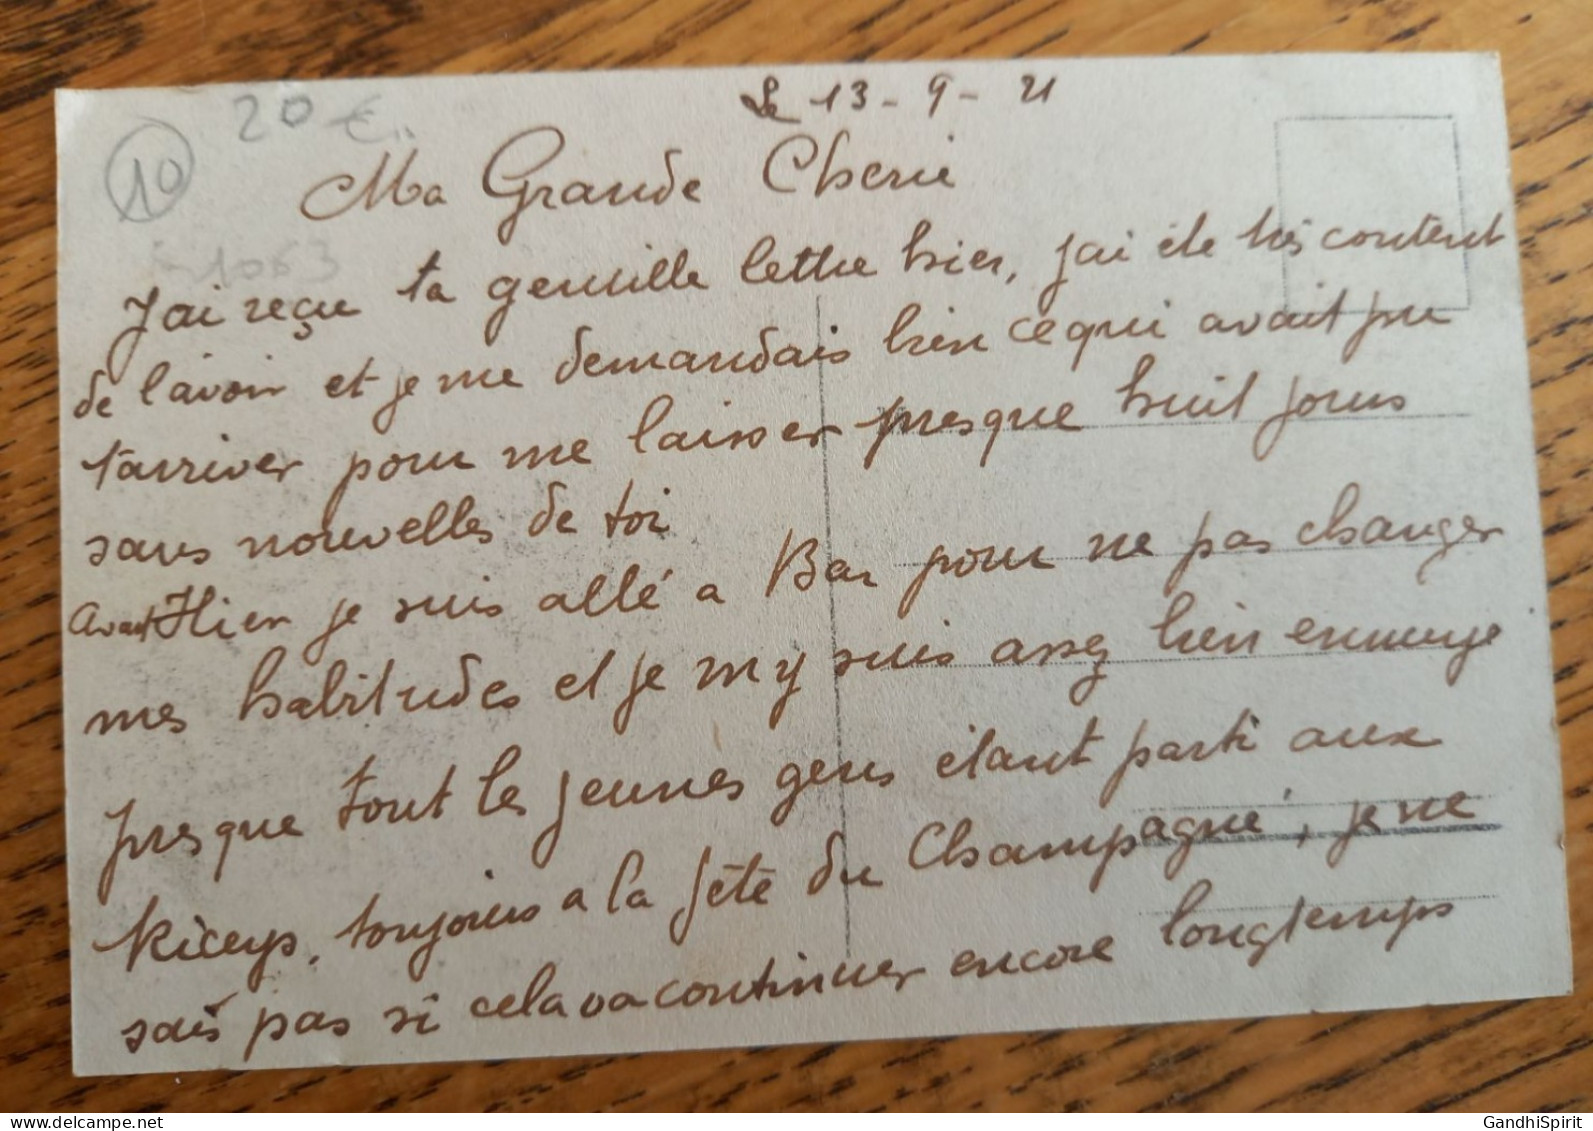 20 €
10
Le 13-9-21
Ma Grande Cherie
J'ai reçu ta gentille lettre hier, j'ai été très content
de l'avoir et je me demandais bien ce qui avait pu
t'arriver pour me laisser presque huit jours
sans nouvelles de toi
Avant Hier je suis allé a Bar pour ne pas changer
mes habitudes et je m'y suis assez bien ennuye
presque tout les jeunes gens étant parti aux
Riceys, toujours a la fête du Champagne, je ne
sais pas si cela va continuer encore longtemps
GandhiSpirit